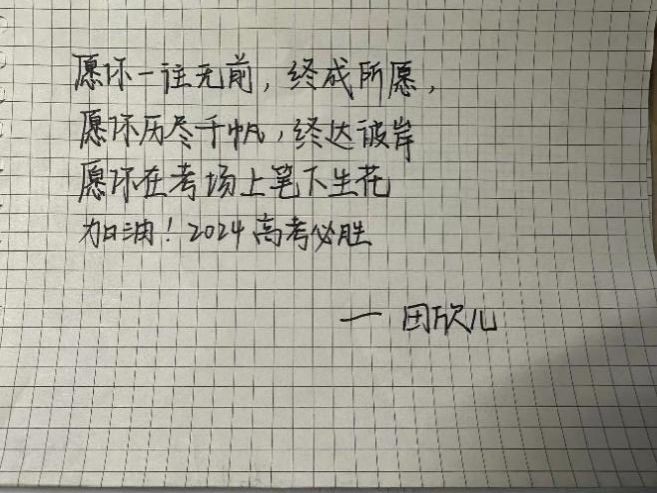 愿你一往无前，终成所愿，
愿你历尽千帆，终达彼岸
愿你在考场上笔下生花
加油！2024高考必胜
— 田欣儿